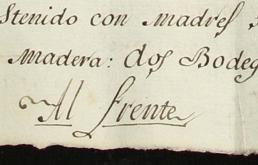 stenido con madres
madera: dos Bodeg
Al frente